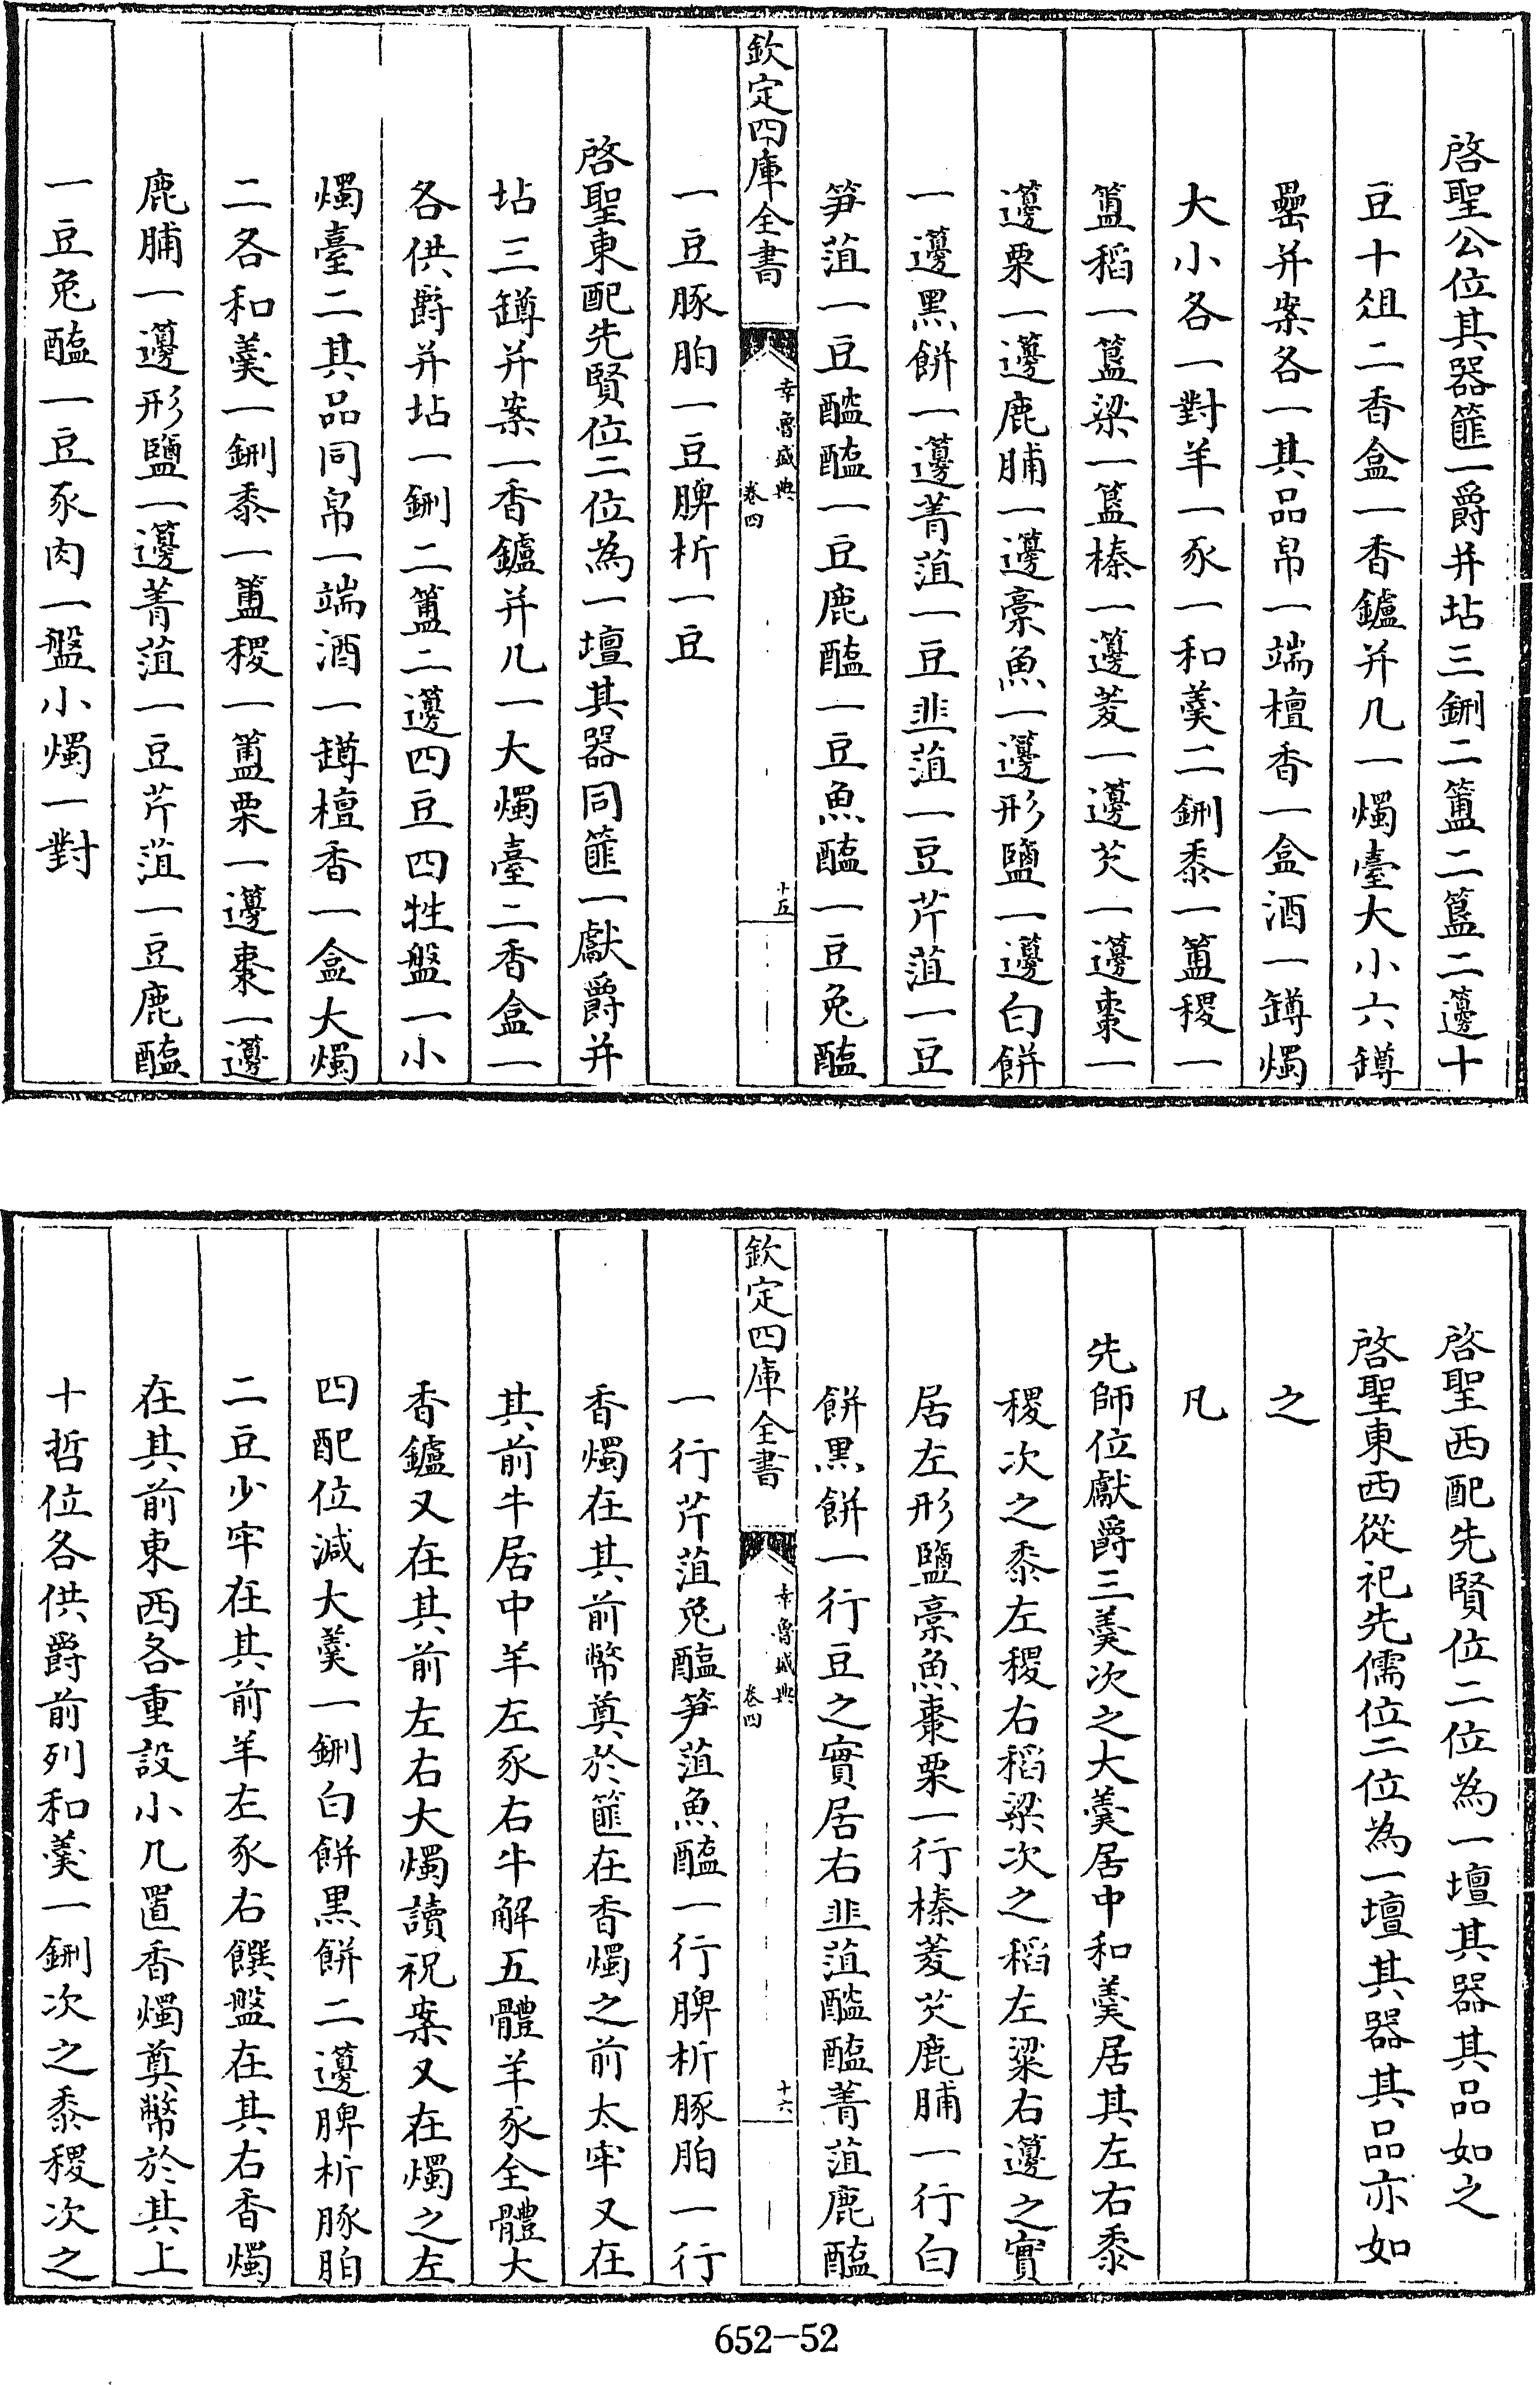 啓聖公位其器篚一爵并坫三鉶二簠二簋二籩十
豆十俎二香盒一香鑪并几一燭臺大小六罇
罍并案各一其品帛一端檀香一盒酒一罇燭
大小各一對羊一豕一和羹二鉶黍一簠稷一
簠稻一簋粱一簋榛一籩菱一籩芡一籩棗一
籩栗一籩鹿脯一籩槀魚一籩形鹽一籩白餅
一籩黑餅一籩菁菹一豆韭菹一豆芹菹一豆
笋菹一豆醓醢一豆鹿醢一豆魚醢一豆兔醢
欽定四庫全書
幸魯盛典
卷四
十五
一豆豚胉一豆脾析一豆
啓聖東配先賢位二位為一壇其器同篚一獻爵并
坫三罇并案一香鑪并几一大燭臺二香盒一
各供爵并坫一鉶二簠二籩四豆四牲盤一小
燭臺二其品同帛一端酒一罇檀香一盒大燭
二各和羹一鉶黍一簠稷一簠栗一籩棗一籩
鹿脯一籩形鹽一籩菁菹一豆芹菹一豆鹿醢
一豆兔醢一豆豕肉一盤小燭一對
啓聖西配先賢位二位為一壇其器其品如之
啓聖東西從祀先儒位二位為一壇其器其品亦如
之
凡
先師位獻爵三羹次之大羹居中和羹居其左右黍
稷次之黍左稷右稻粱次之稻左粱右籩之實
居左形鹽槀魚棗栗一行榛菱芡鹿脯一行白
餅黑餅一行豆之實居右韭菹醓醢菁菹鹿醢
欽定四庫全書
幸魯盛典
卷四
十六
一行芹菹兔醢笋菹魚醢一行脾析豚胉一行
香燭在其前幣奠於篚在香燭之前太牢又在
其前牛居中羊左豕右牛解五體羊豕全體大
香鑪又在其前左右大燭讀祝案又在燭之左
四配位減大羹一鉶白餅黑餅二籩脾析豚胉
二豆少牢在其前羊左豕右饌盤在其右香燭
在其前東西各重設小几置香燭奠幣於其上
十哲位各供爵前列和羹一鉶次之黍稷次之
652-52